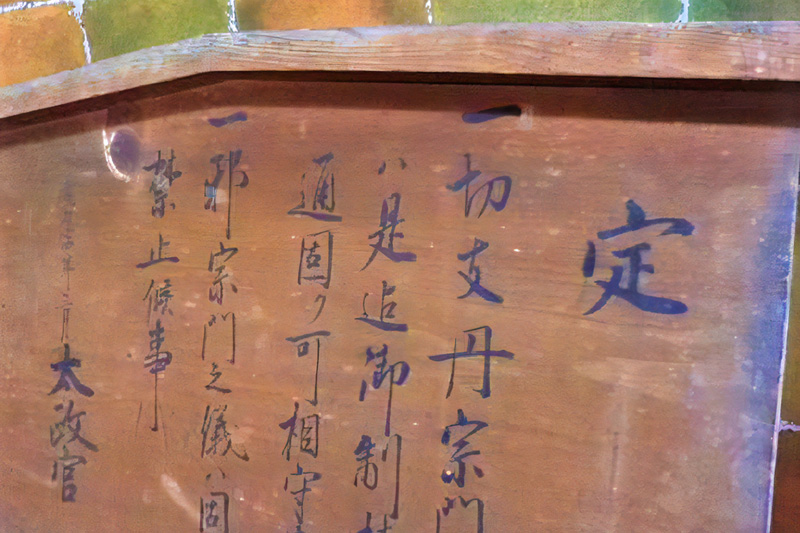 定
一切支丹宗門
ハ是迄御制禁
通固ク可相守
一邪宗門之儀ハ固
禁止候事
年三月
太政官